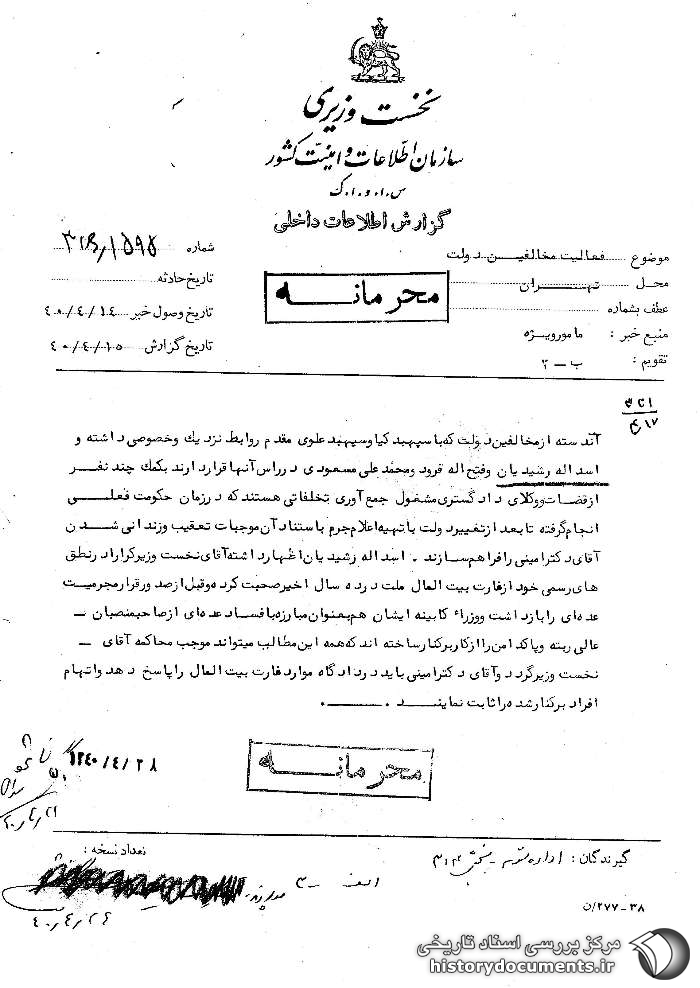 نخست وزیری
سازمان اطلاعات و امنیت کشور
س.ا.و.ا.ک
گزارش اطلاعات داخلی
موضوع فعالیت مخالفین دولت
محل تهران
عطف بشماره
منبع خبر : مامورویژه
تقویم : ب - ۲
شماره
تاریخ حادثه
تاریخ وصول خبر ۴۰/۴/۱۴
تاریخ گزارش ۴۰/۴/۱۵
محرمانه
۳۲۱
۴/۱۷
آندسته ازمخالفین دولت که با سپهبد کیا وسپهبد علوی مقدم روابط نزدیك وخصوصی داشته و
اسداله رشیدیان وفتح اله فرود ومحمد علی مسعودی درراس آنها قرار دارند بکمك چند نفر
ازقضات ووکلای دادگستری مشغول جمع آوری تخلفاتی هستند که درزمان حکومت فعلی
انجام گرفته تا بعد ازتغییر دولت با تهیه اعلام جرم باستناد آن موجبات تعقیب وزندانی شدن
آقای دکترامینی رافراهم سازند . اسداله رشیدیان اظهار داشته آقای نخست وزیر کرارا درنطق
های رسمی خود ازغارت بیت المال ملت درده سال اخیرصحبت کرده وقبل ازصدور قرارمجرمیت
عده ای رابازداشت ووزراء کابینه ایشان هم بعنوان مبارزه با فساد عده ای ازصاحبمنصبان ـ
عالی رتبه وپاکدامن را ازکاربرکنار ساخته اند که همه این مطالب میتواند موجب محاکمه آقای ـ
نخست وزیرگردد وآقای دکترامینی باید دردادگاه موارد غارت بیت المال را پاسخ دهد واتهام
افراد برکنارشده را ثابت نمایند .
۱۳۴۰/۴/۲۸
محرمانه
گیرندگان : اداره سوم - بخش ۳۱۲
تعداد نسخه :
الف - ۳
۴۰/۴/۲۴
۳۸-۲۷۷/ن
مرکز بررسی اسناد تاریخی
historydocuments.ir